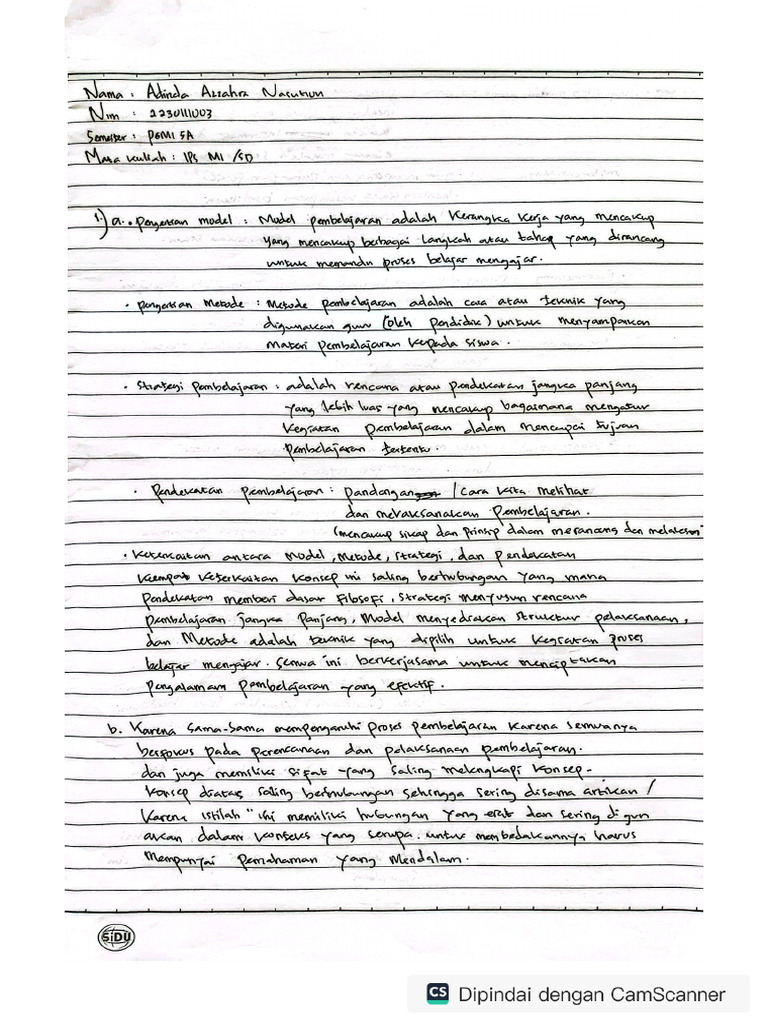 Nama : Adinda Azzahra Nasution
Nim : 2230111003
Semester : PGMI 5A
Mata kuliah : IPS MI /SD
1.) a. • Pengertian model : Model pembelajaran adalah kerangka kerja yang mencakup
yang mencakup berbagai langkah atau tahap yang dirancang
untuk memandu proses belajar mengajar.
• Pengertian Metode : Metode pembelajaran adalah cara atau teknik yang
digunakan guru (oleh pendidik) untuk menyampaikan
materi pembelajaran kepada siswa.
• Strategi Pembelajaran : adalah rencana atau pendekatan jangka panjang
yang lebih luas yang mencakup bagaimana mengatur
kegiatan pembelajaran dalam mencapai tujuan
pembelajaran tertentu.
• Pendekatan pembelajaran : pandangan / cara kita melihat
dan melaksanakan pembelajaran.
(mencakup sikap dan prinsip dalam merancang dan
• Keterkaitan antara Model, Metode, Strategi, dan pendekatan
Keempat keterkaitan konsep ini saling berhubungan yang mana
Pendekatan memberi dasar filosofi, strategi menyusun rencana
pembelajaran jangka panjang, Model menyediakan struktur pelaksanaan,
dan Metode adalah teknik yang dipilih untuk kegiatan proses
belajar mengajar. Semua ini berkerjasama untuk menciptakan
pengalaman pembelajaran yang efektif.
b. Karena sama-sama mempengaruhi proses pembelajaran karena semuanya
berfokus pada perencanaan dan pelaksanaan pembelajaran.
dan juga memiliki sifat yang saling melengkapi konsep-
konsep diatas saling berhubungan sehingga sering disama artikan /
karena istilah" ini memiliki hubungan yang erat dan sering digun
akan dalam konteks yang serupa. untuk membedakannya harus
mempunyai pemahaman yang Mendalam.
SiDU
CS Dipindai dengan CamScanner